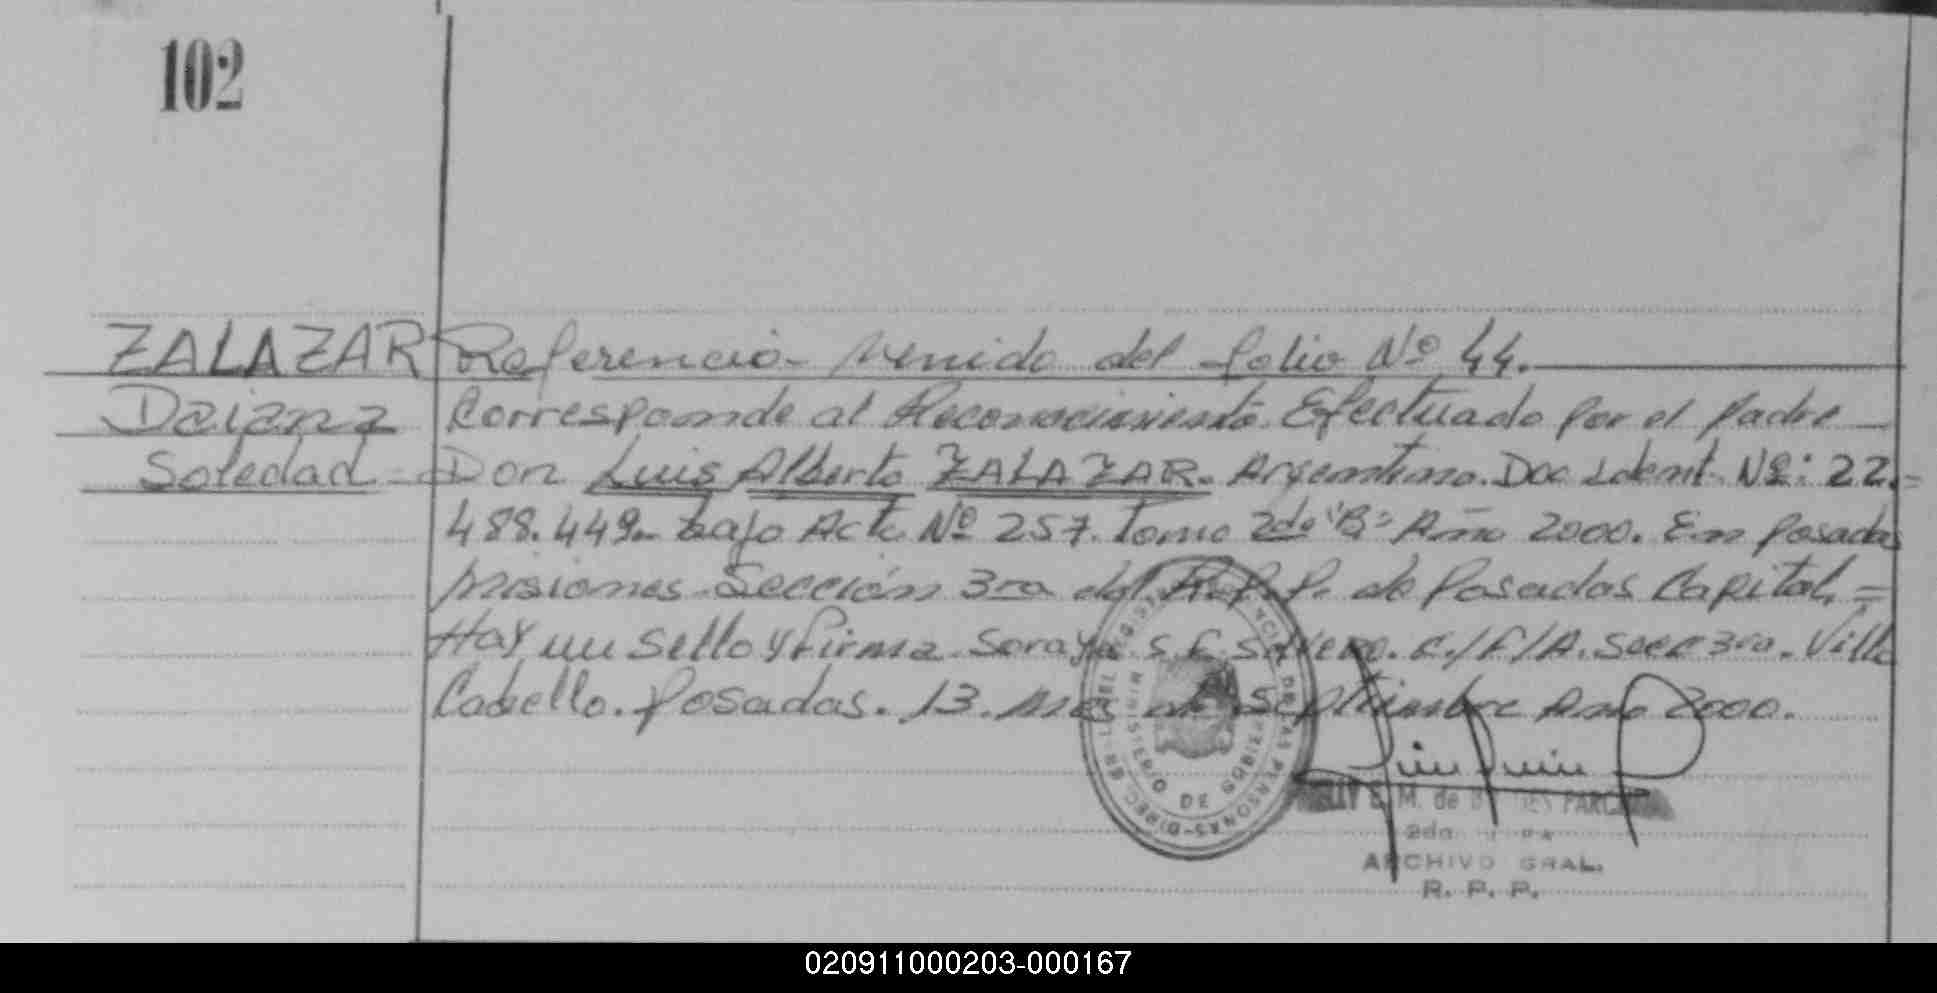 102
ZALAZAR Referencia - Venido del folio Nº 44.
Daiana Corresponde al Reconocimiento Efectuado por el padre
Soledad = Don Luis Alberto ZALAZAR. Argentino. Doc Ident. Nº: 22.=
488.449- bajo Acta Nº 257. Tomo 2do "B" Año 2000. En Posadas
Misiones. Sección 3ra del R.P.P. de Posadas Capital. =
Hay un Sello y firma Soraya S. C./F/A. Secc 3ra. Villa
Cabello. Posadas. 13. Mes de Septiembre Año 2000.
MINISTERIO DE GOBIERNO
DE LAS PERSONAS
M. de
2da
ARCHIVO GRAL.
R. P. P.
020911000203-000167